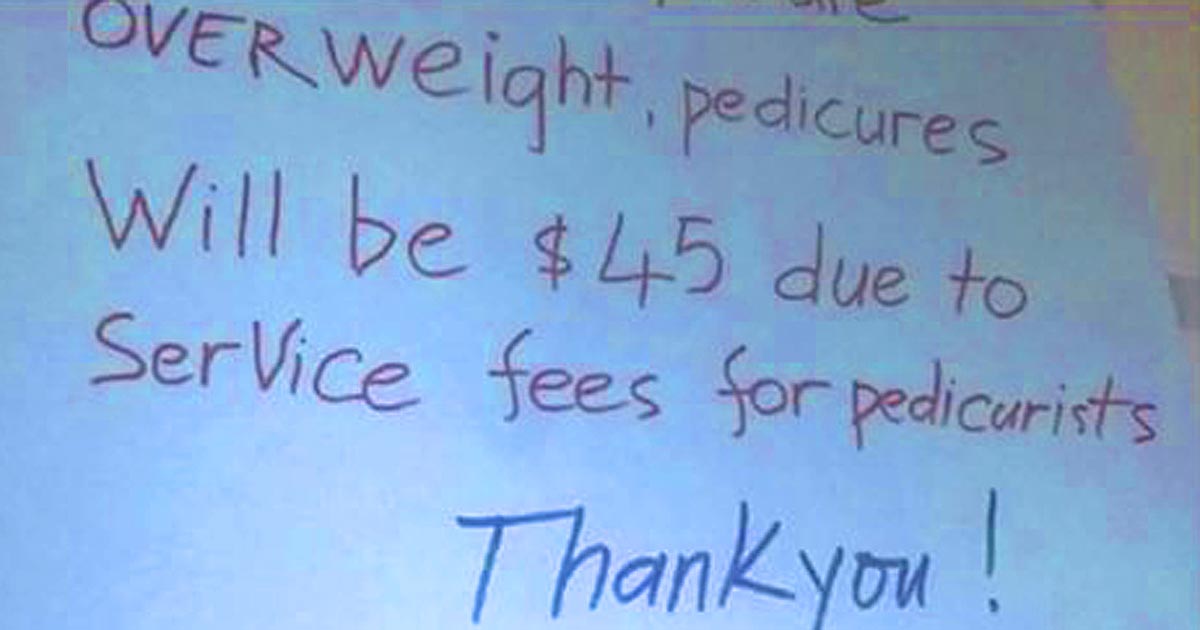 OVERweight, pedicures
Will be $45 due to
Service fees for pedicurists
Thankyou!